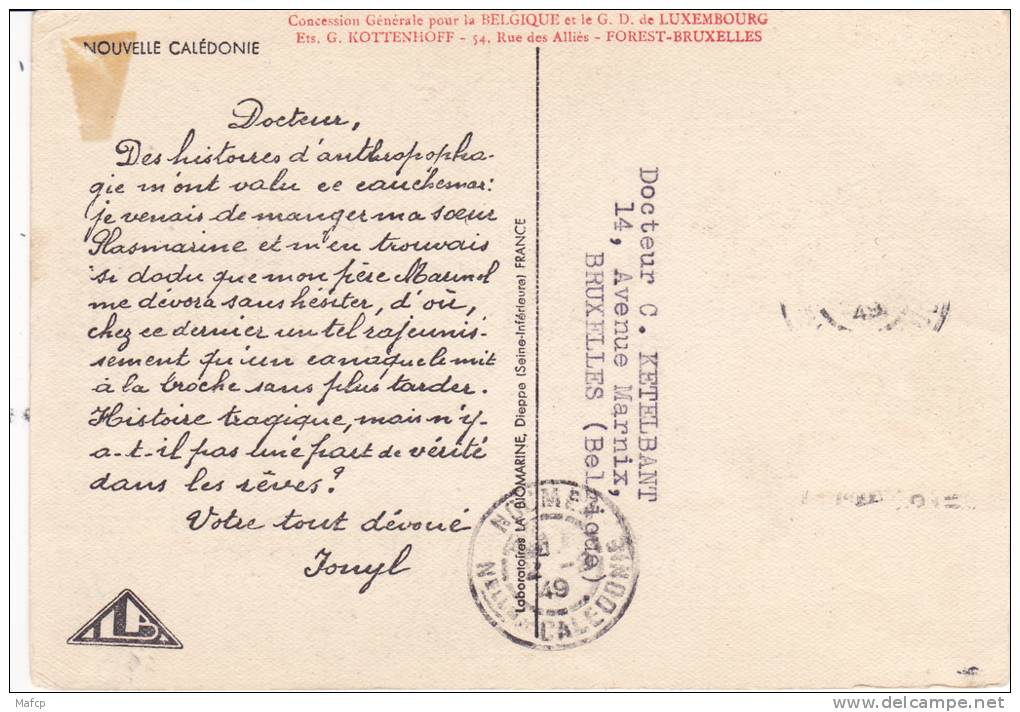 Concession Générale pour la BELGIQUE et le G. D. de LUXEMBOURG
Ets. G. KOTTENHOFF - 54, Rue des Alliés - FOREST-BRUXELLES
NOUVELLE CALÉDONIE
Docteur,
Des histoires d'anthropopha-
gie m'ont valu ce cauchemar:
je venais de manger ma soeur
Plasmarine et m'en trouvais
si dodu que mon frère Marinol
me dévora sans hésiter, d'où,
chez ce dernier un tel rajeunis-
sement qu'un canaque le mit
à la broche sans plus tarder.
Histoire tragique, mais n'y-
a-t-il pas une part de vérité
dans les rêves?
Votre tout dévoué
Ionyl
Laboratoires LA BIOMARINE, Dieppe (Seine-Inférieure) FRANCE
Docteur C. KETELBANT
14, Avenue Marnix,
BRUXELLES (Belgique)
NOUMEA
49
NELLE CALEDONIE
49
LB
Mafcp
delcampe.net